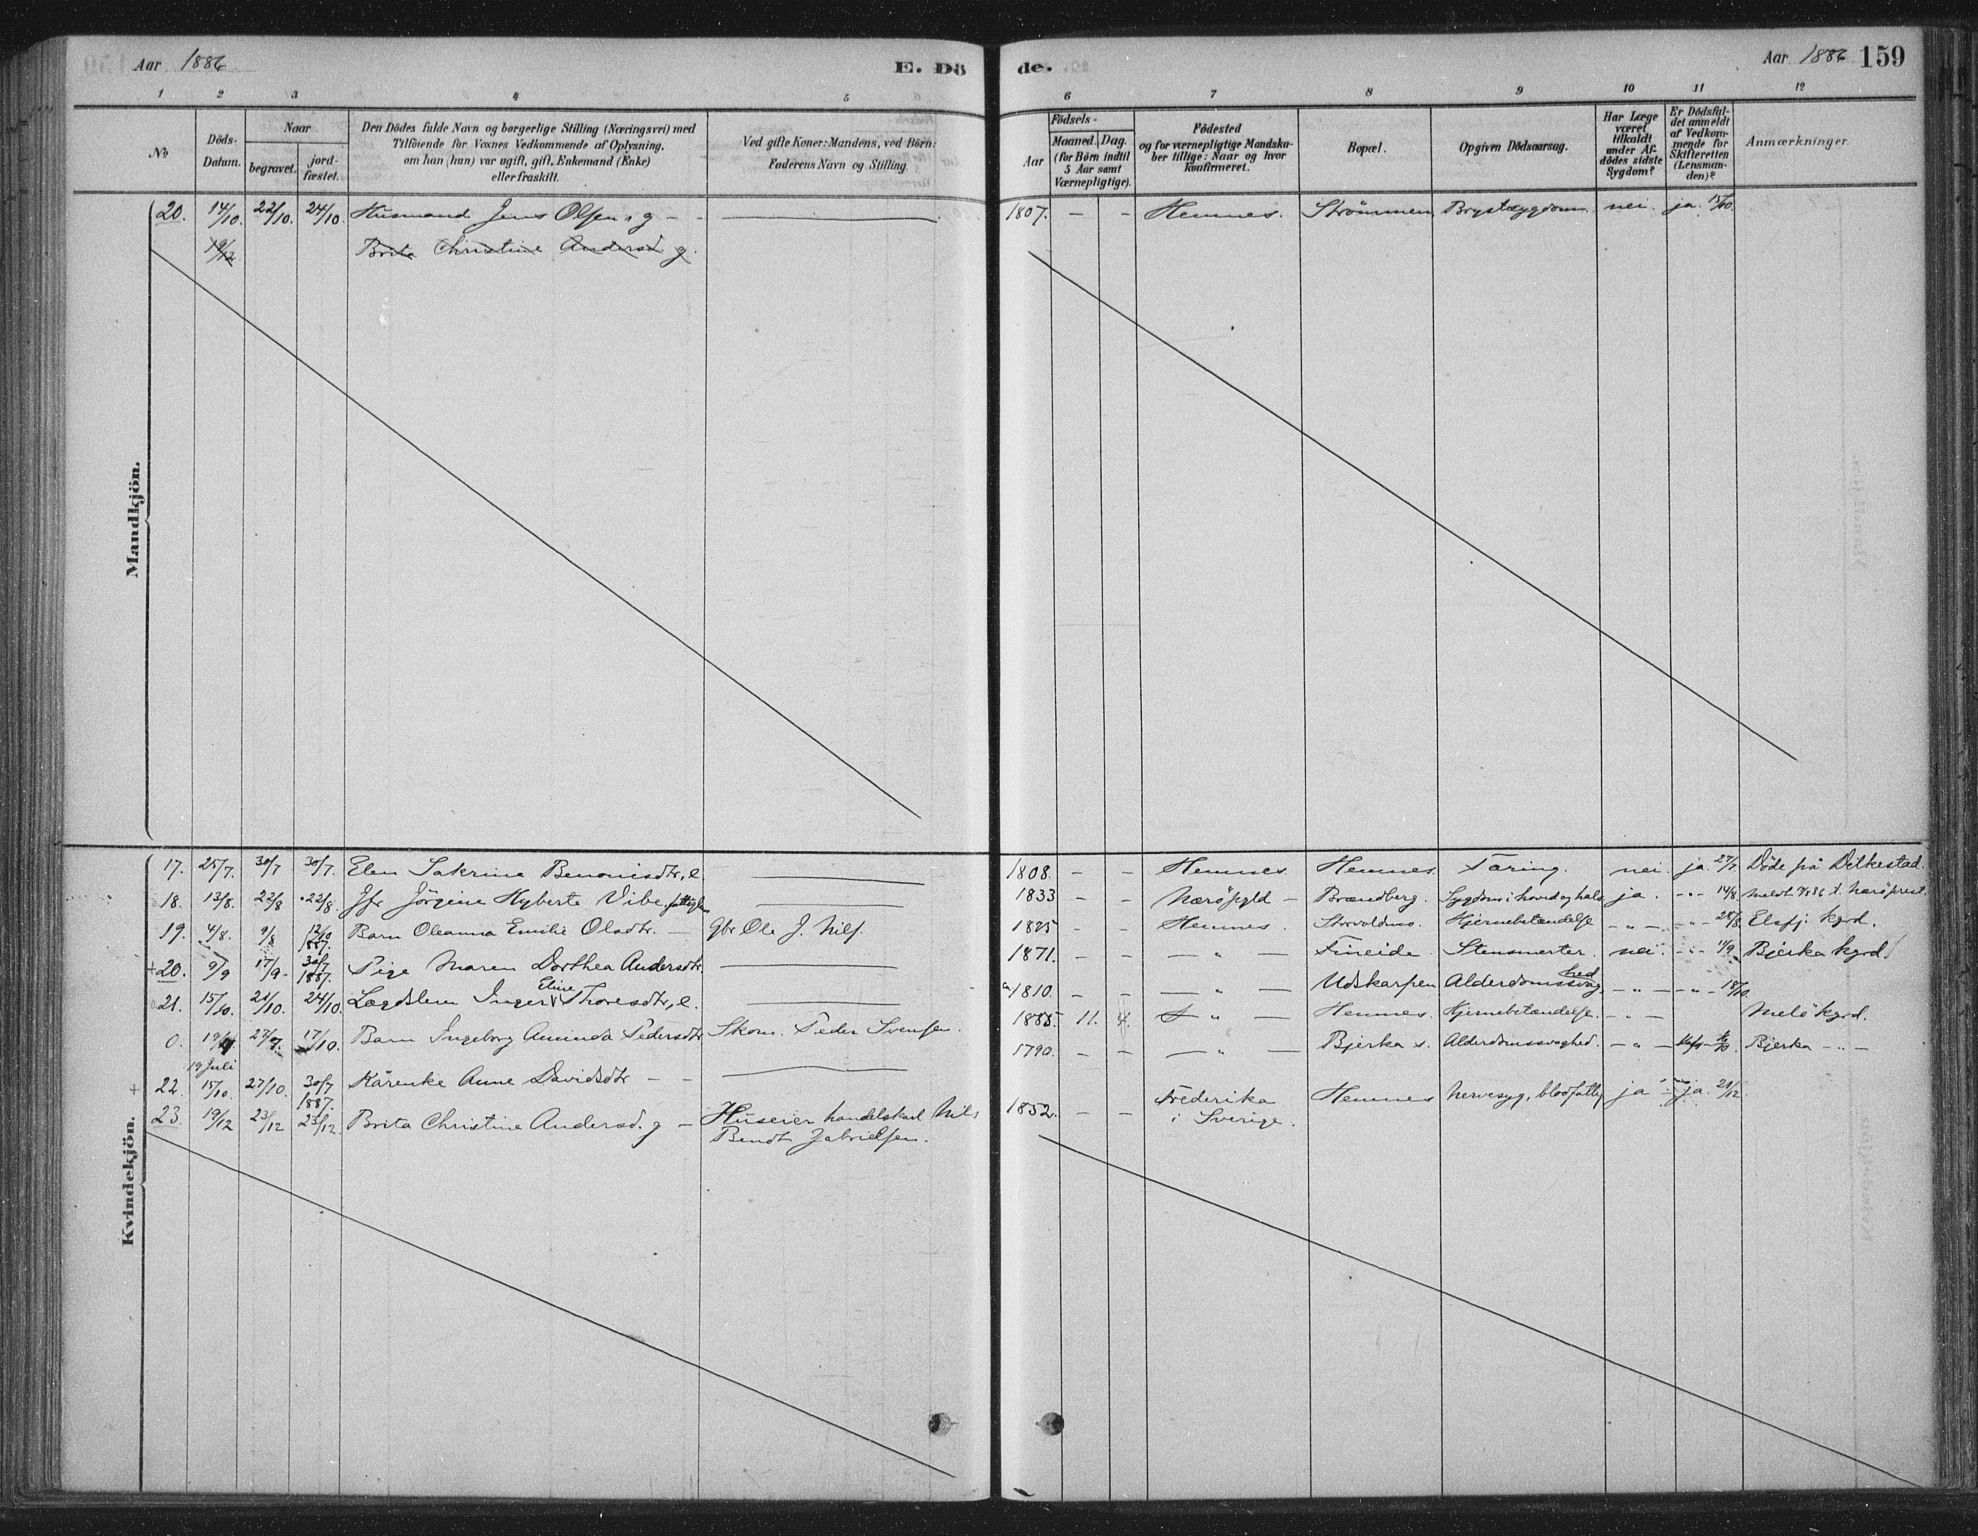 Aar 1886 E. Dö
de. Aar 1886 159
1 2 3 4 5
6 7 8 9 10 11 12
No
Döds-
Datum.
Naar
begravet. jord-
fæstet.
Den Dödes fulde Navn og borgerlige Stilling (Næringsvei) med
Tilföiende for Voxnes Vedkommende af Oplysning,
om han (hun) var ugift, gift, Enkemand (Enke)
eller fraskilt.
Ved gifte Koner: Mandens, ved Börn:
Faderens Navn og Stilling.
Födsels-
Aar
Maaned. Dag.
(for Börn indtil
5 Aar samt
Værnepligtige).
Födested
og for værnepligtige Mandska-
ber tillige: Naar og hvor
konfirmeret.
Bopæl.
Opgiven Dödsaarsag.
Har Læge
været
tilkaldt
under Af-
dödes sidste
Sygdom?
Er Dödsfal-
det anmeldt
af Vedkom-
mende for
Skifteretten
(Lensman-
den)?
Anmærkninger.
Mandkjön.
20. 14/10. 22/10. 24/10. Husmand Jens Olsen, g - - 1807. - - Hemnes. Strömmen Brystsygdom nei. ja. 15/10.
19/12 Brita Christine Andersd g.
Kvindekjön.
17. 25/7. 30/7 30/7. Elen Sakrine Benonisdtr, e. 1808. - - Hemnes. Hemnes. Tæring. nei. ja. 27/7. Döde på Dilkestad.
18. 13/8. 22/8 22/8. Jfr Jörgine Hyberte Vibe, 1833 - - Næröpgld - Brændberg. Sygdom i hoved og hals ja. -"- 14/8.
19. 4/8. 9/8 12/10 1887. Barn Oleanna Emilie Olsdtr. - Gbr Ole J. Nils. 1885 - - Hemnes. Hjernebetændelse -"- -"- 28/8. Elsfj. kgrd.
+20. 9/9 17/9. 30/7 1887. Pige Maren Dorthea Andersdtr. 1871. - - -"- Fineide. Stensmerter. nei. -"- 11/9. Bjerka kgrd.
21. 15/10. 21/10. 24/10. Lægdslem Inger Eline Thoresdtr, e. 1810. - - -"- Udskarpen Alderdomssvaghed -"- -"- 18/10.
0. 19/7 19 Juli 27/7. 17/10. Barn Ingeborg Aminda Pedersdtr Skom. Peder Svensen. 1885. 11. 4. -"- Hemnes. Hjernebetændelse. -"- Melö kgrd.
+ 22. 15/10. 27/10. 30/7 1887. Kårenke Anne Davidsdtr - - 1790. -"- Bjerka s. Alderdomssvaghed. -"- Bjerka -"-
23. 19/12 23/12 23/12. Brita Christine Andersd. g - Huseier handelskarl Nils
Bendt Gabrielsen. 1852. - - Frederika
i Sverige. Hemnes nervesyg, blodfattig ja ja. 21/12